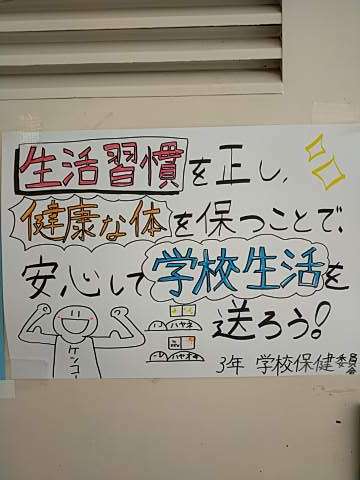 生活習慣を正し、
健康な体を保つことで、
安心して学校生活を
送ろう!
ハヤネ
ハヤオキ
ケンコー
3年 学校保健委員会